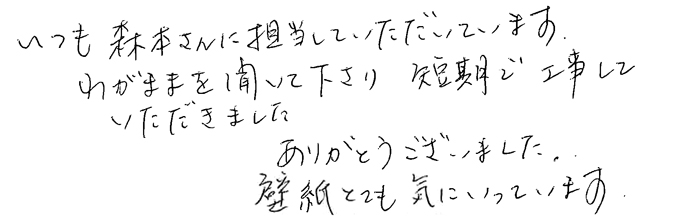 いつも森本さんに担当していただいています.
わがままを聞いて下さり 短期で工事して
いただきました
ありがとうございました.
壁紙とても気にいっています.